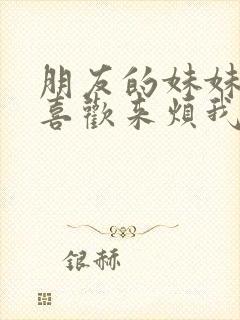 朋友的妹妹
喜歡來煩我
银赫